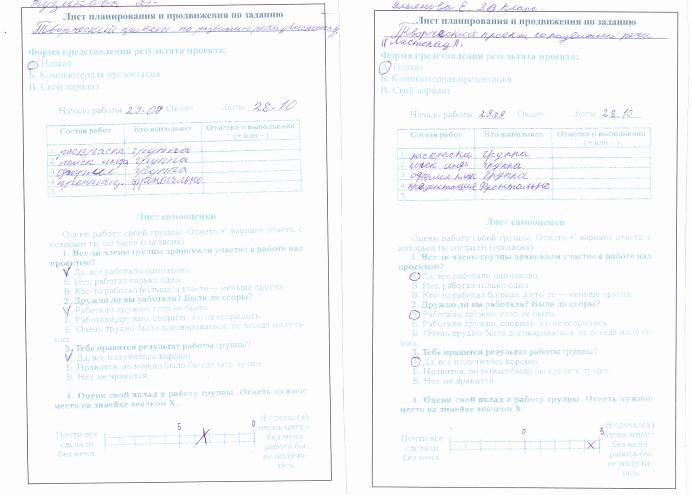 Лист планирования и продвижения по заданию
Творческий проект по развитию речи "Листопад".
Форма представления результата проекта:
А. Плакат
Б. Компьютерная презентация
В. Свой вариант
Начало работы 29.09 Оконч боты 28.10
Состав работ Кто выполняет Отметка о выполнении (+ или −)
1. раскраска группа
2. поиск инф. группа
3. группа
4. фронтально
5.
Лист самооценки
Оцени работу своей группы. Отметь вариант ответа, с
которым ты согласен (согласна).
1. Все ли члены группы принимали участие в работе над
проектом?
А. Да, все работали одинаково.
Б. Нет, работал только один.
В. Кто-то работал больше, а кто-то — меньше других.
2. Дружно ли вы работали? Были ли ссоры?
А. Работали дружно, ссор не было.
Б. Работали дружно, спорили, но не ссорились.
В. Очень трудно было договариваться, не всегда получа-
лось.
3. Тебе нравится результат работы группы?
А. Да, все получилось хорошо.
Б. Нравится, но можно было бы сделать лучше.
В. Нет, не нравится.
4. Оцени свой вклад в работу группы. Отметь нужное
место на линейке значком X.
Почти все
сделали
без меня
5 0
X
Я сделал(а)
очень много,
без меня
работа бы
не получи-
лась
Е. 2В класс.
Лист планирования и продвижения по заданию
Творческий проект по развитию речи
"Листопад".
Форма представления результата проекта:
А. Плакат
Б. Компьютерная презентация
В. Свой вариант
Начало работы 29.09 Оконч боты 28.10
Состав работ Кто выполняет Отметка о выполнении (+ или −)
1. раскраска группа
2. поиск инф. группа
3. группа
4. презентация фронтально
5.
Лист самооценки
Оцени работу своей группы. Отметь вариант ответа, с
которым ты согласен (согласна).
1. Все ли члены группы принимали участие в работе над
проектом?
А. Да, все работали одинаково.
Б. Нет, работал только один.
В. Кто-то работал больше, а кто-то — меньше других.
2. Дружно ли вы работали? Были ли ссоры?
А. Работали дружно, ссор не было.
Б. Работали дружно, спорили, но не ссорились.
В. Очень трудно было договариваться, не всегда получа-
лось.
3. Тебе нравится результат работы группы?
А. Да, все получилось хорошо.
Б. Нравится, но можно было бы сделать лучше.
В. Нет, не нравится.
4. Оцени свой вклад в работу группы. Отметь нужное
место на линейке значком X.
Почти все
сделали
без меня
0 5
X
Я сделал(а)
очень много,
без меня
работа бы
не получи-
лась